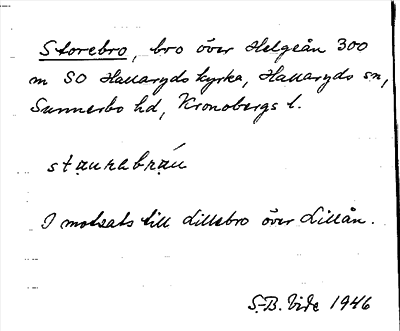 Storebro, bro över Helgeån 300
m SO Hallaryds kyrka, Hallaryds sn,
Sunnerbo hd, Kronobergs l.
I motsats till Lillebro över Lillån.
S.-B. Vide 1946